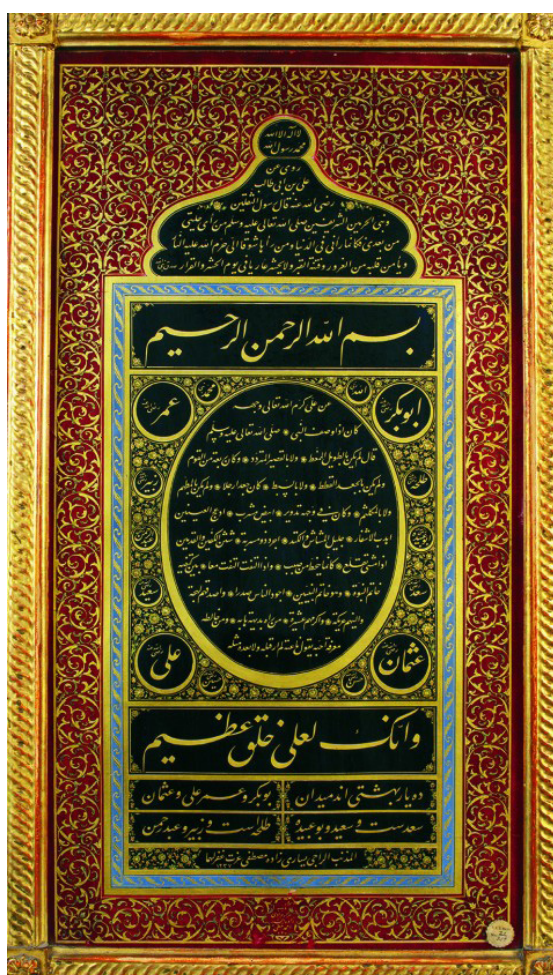 لا اله الا الله
محمد رسول الله
روى عن
علي بن أبي طالب
رضى الله عنه قال رسول الثقلين
ونبي الحرمين الشريفين صلى الله تعالى عليه وسلم من رأى حليتي
من بعدي فكأنما رآني في الدنيا ومن رآها شوقا إلي حرم الله عليه النار
بسم الله الرحمن الرحيم
ابوبكر
عمر
الله
محمد
عن علي كرم الله تعالى وجهه
كان اذا وصف النبي صلى الله تعالى عليه وسلم
قال لم يكن بالطويل الممغط ولا بالقصير المتردد وكان ربعة من القوم
ولم يكن بالجعد القطط ولا بالسبط كان جعدا رجلا ولم يكن بالمطهم
ولا بالمكلثم وكان في وجهه تدوير ابيض مشرب ادعج العينين
اهدب الاشفار جليل المشاش والكتد اجرد ذو مسربة شثن الكفين والقدمين
اذا مشى تقلع كأنما ينحط من صبب واذا التفت التفت معا بين كتفيه
خاتم النبوة وهو خاتم النبيين اجود الناس صدرا واصدقهم لهجة
والينهم عريكة واكرمهم عشرة من رآه بديهة هابه ومن خالطه
معرفة احبه يقول ناعته لم ار قبله ولا بعده مثله
طلحه
زبير
سعد
سعيد
عثمان
علي
وانك لعلى خلق عظيم
ده يار بهشتى اند ميدان
بوبكر و عمر علي و عثمان
سعدست و سعيد و بوعبيده
طلحه ست و زبير و عبدرحمن
المذنب الراجي يساري زاده مصطفى عزت غفر لهما